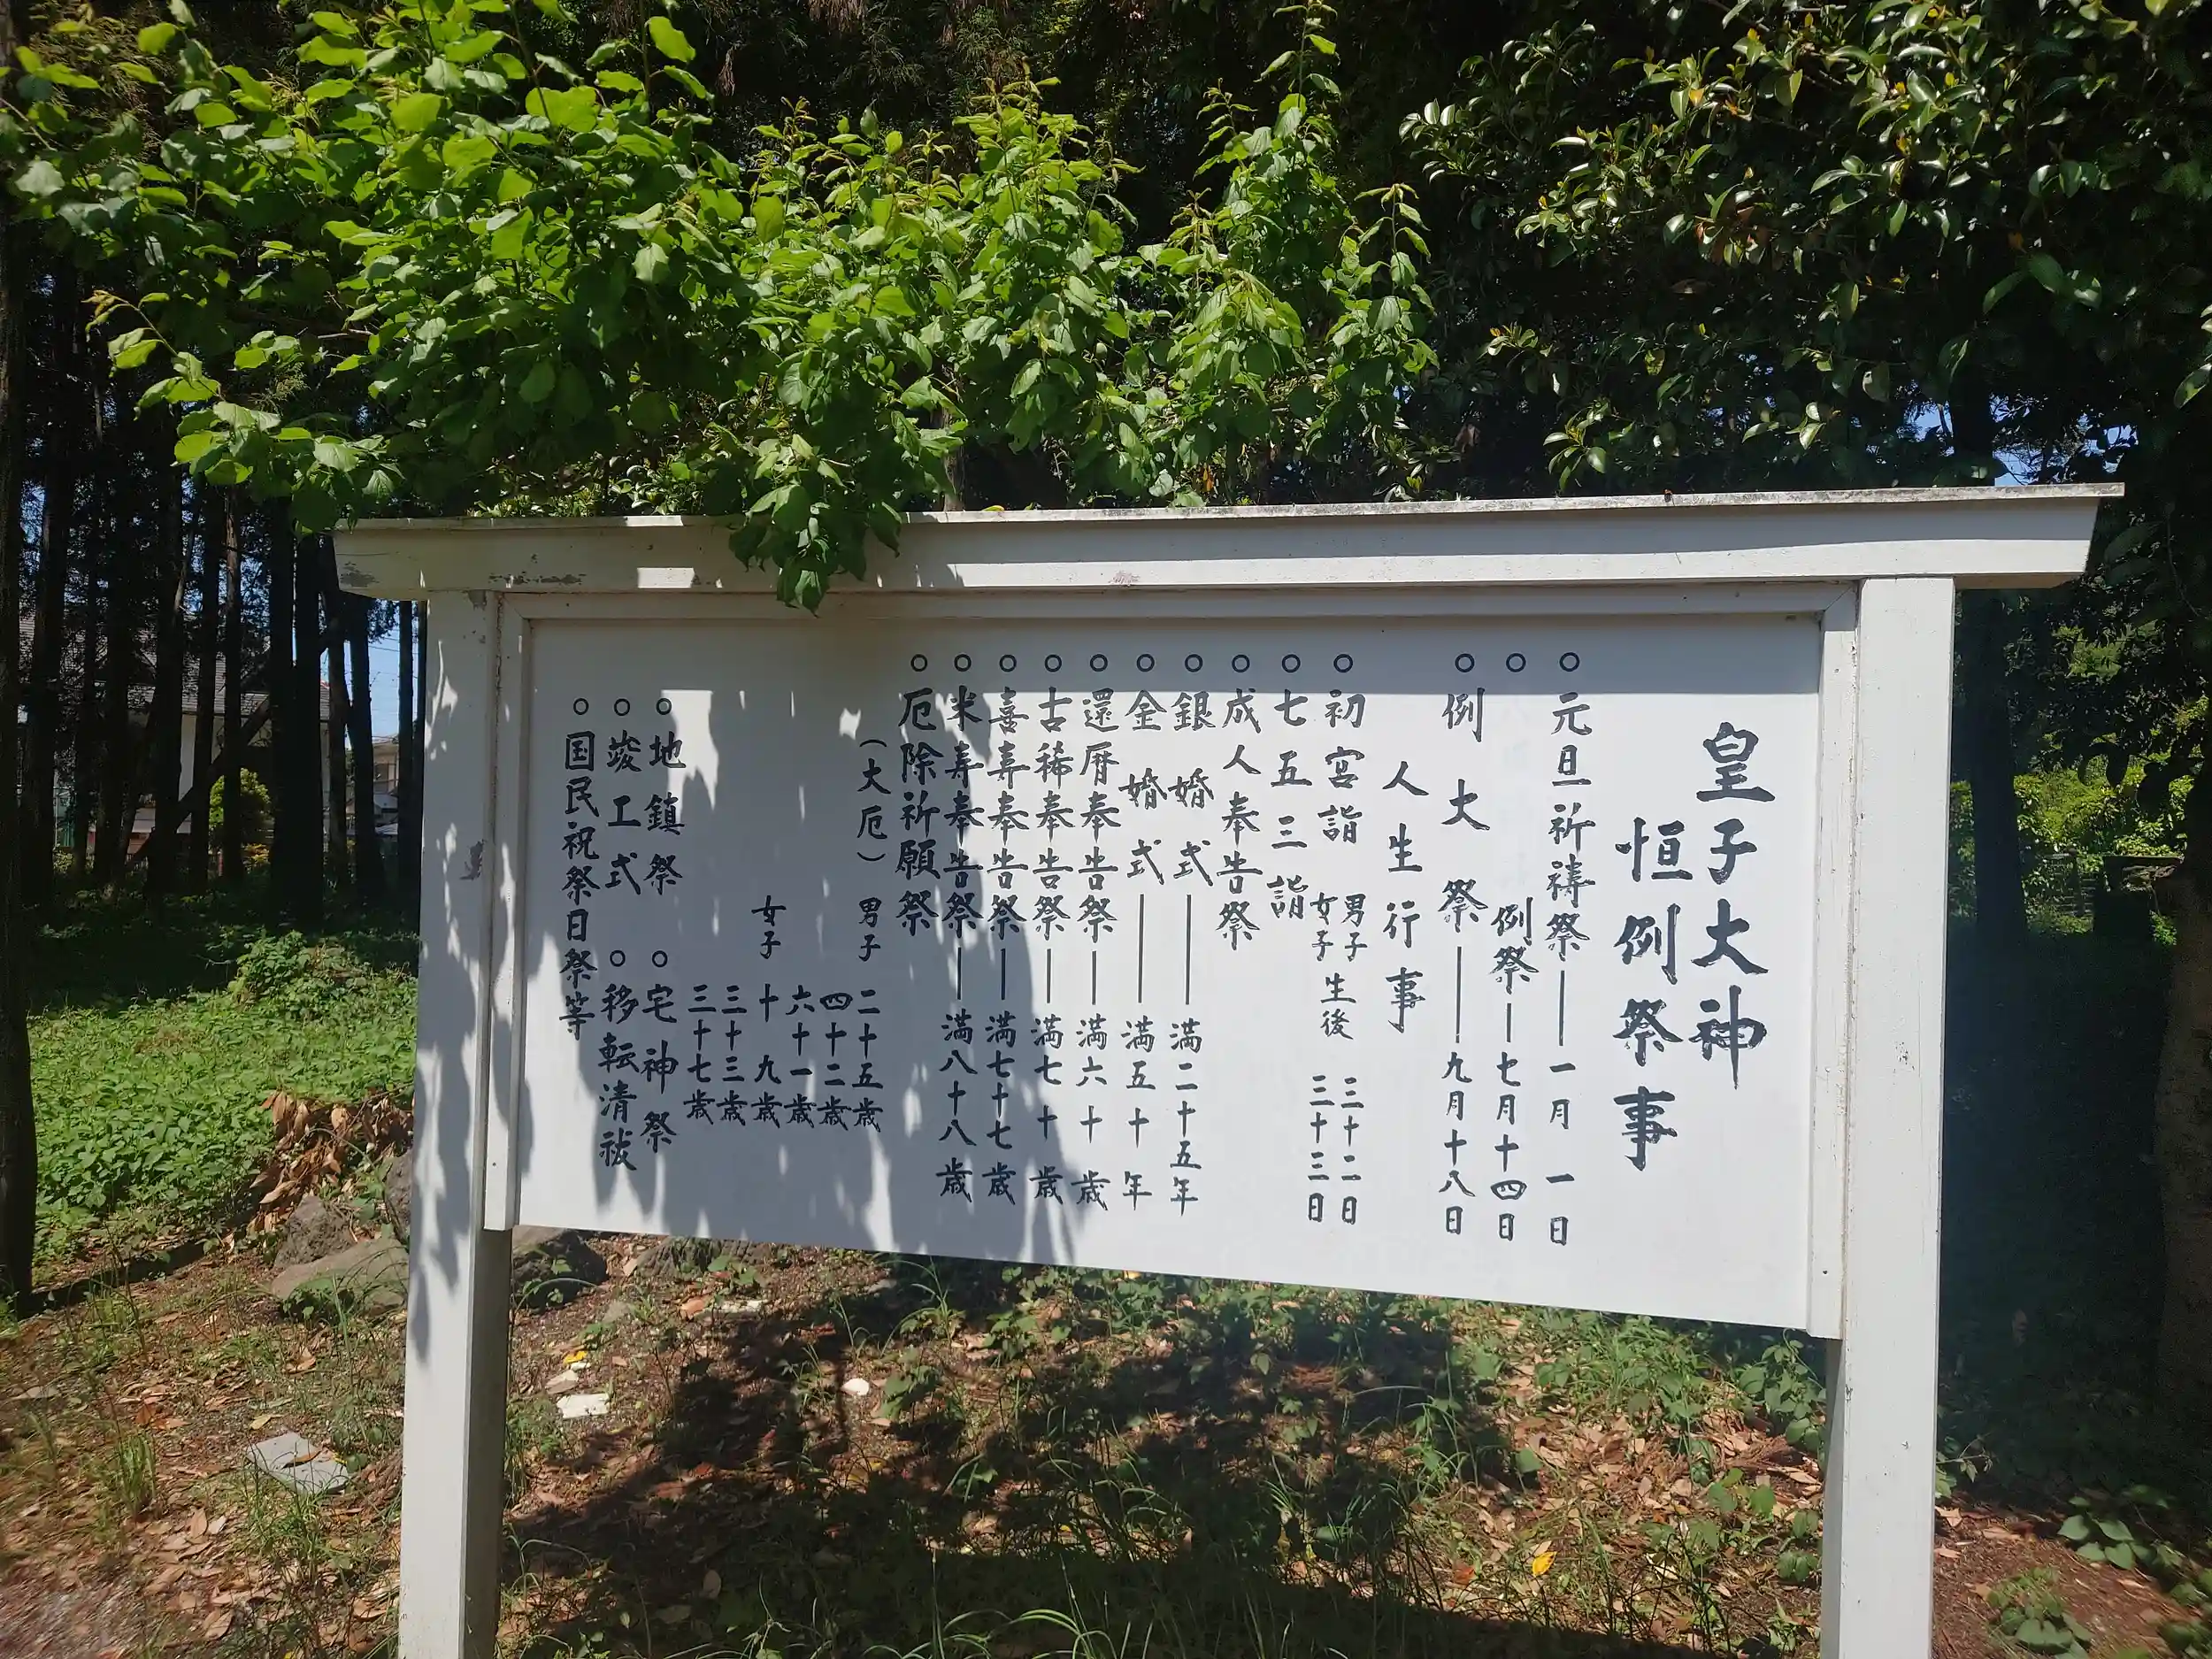 皇子大神
恒例祭事
○元旦祈祷祭―一月一日
○例祭―七月十四日
○例大祭―九月十八日
人生行事
○初宮詣 男子 女子 生後 三十二日 三十三日
○七五三詣
○成人奉告祭
○銀婚式―満二十五年
○金婚式―満五十年
○還暦奉告祭―満六十歳
○古稀奉告祭―満七十歳
○喜寿奉告祭―満七十七歳
○米寿奉告祭―満八十八歳
○厄除祈願祭
(大厄) 男子 二十五歳
四十二歳
六十一歳
女子 十九歳
三十三歳
三十七歳
○地鎮祭 ○宅神祭
○竣工式 ○移転清祓
○国民祝祭日祭等